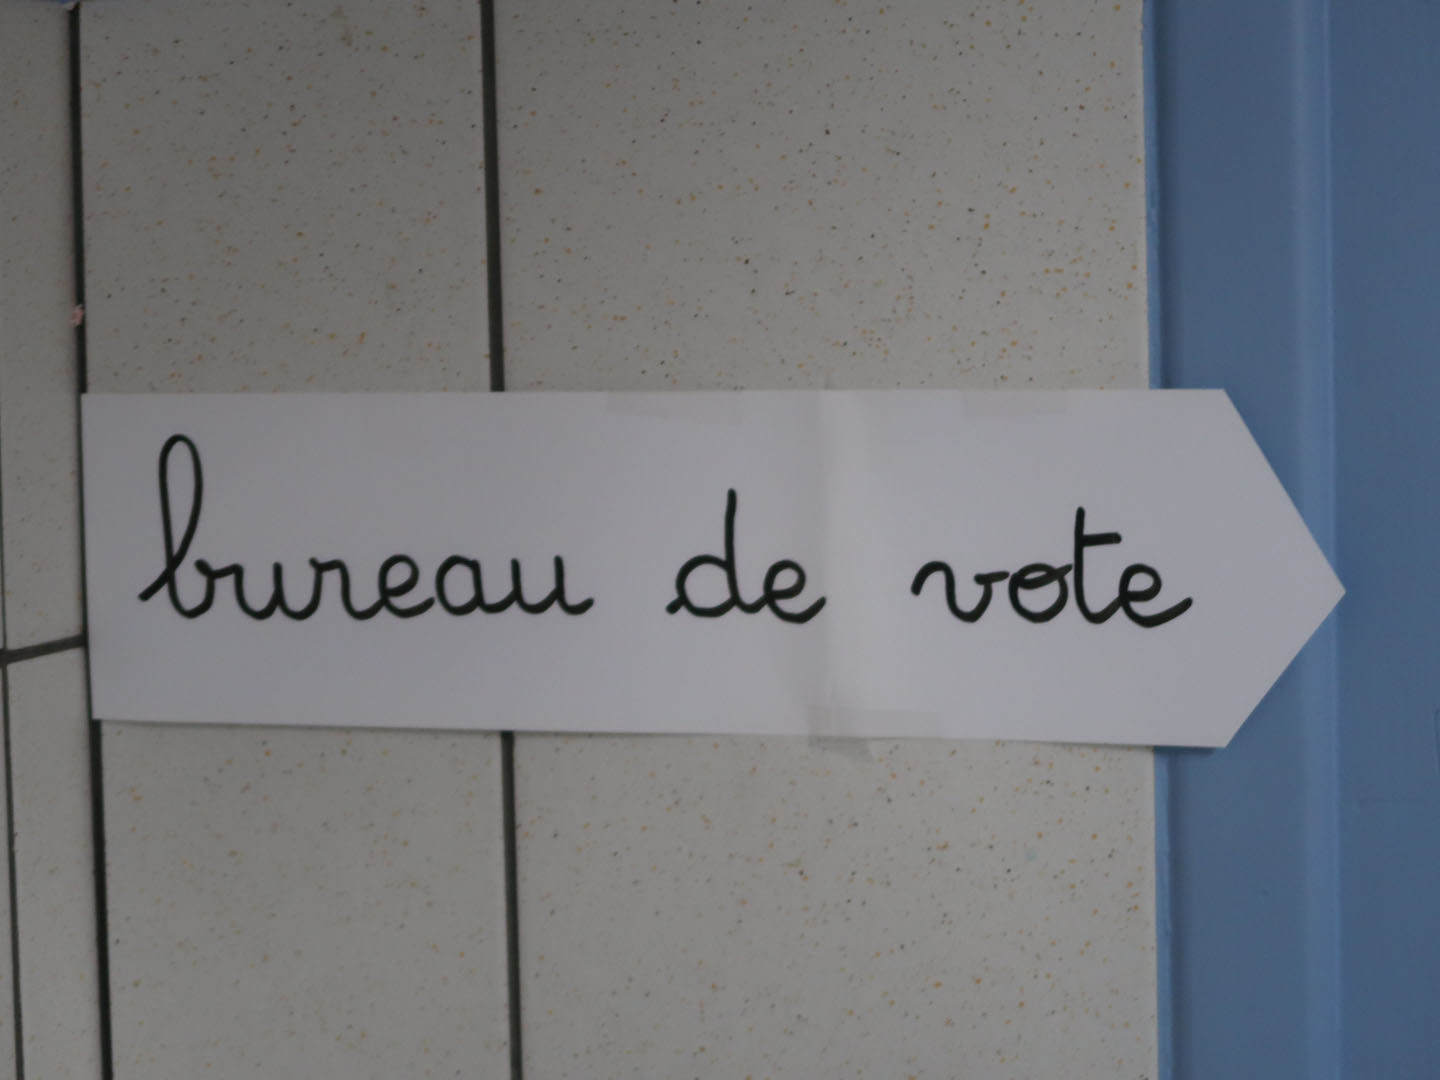 bureau de vote